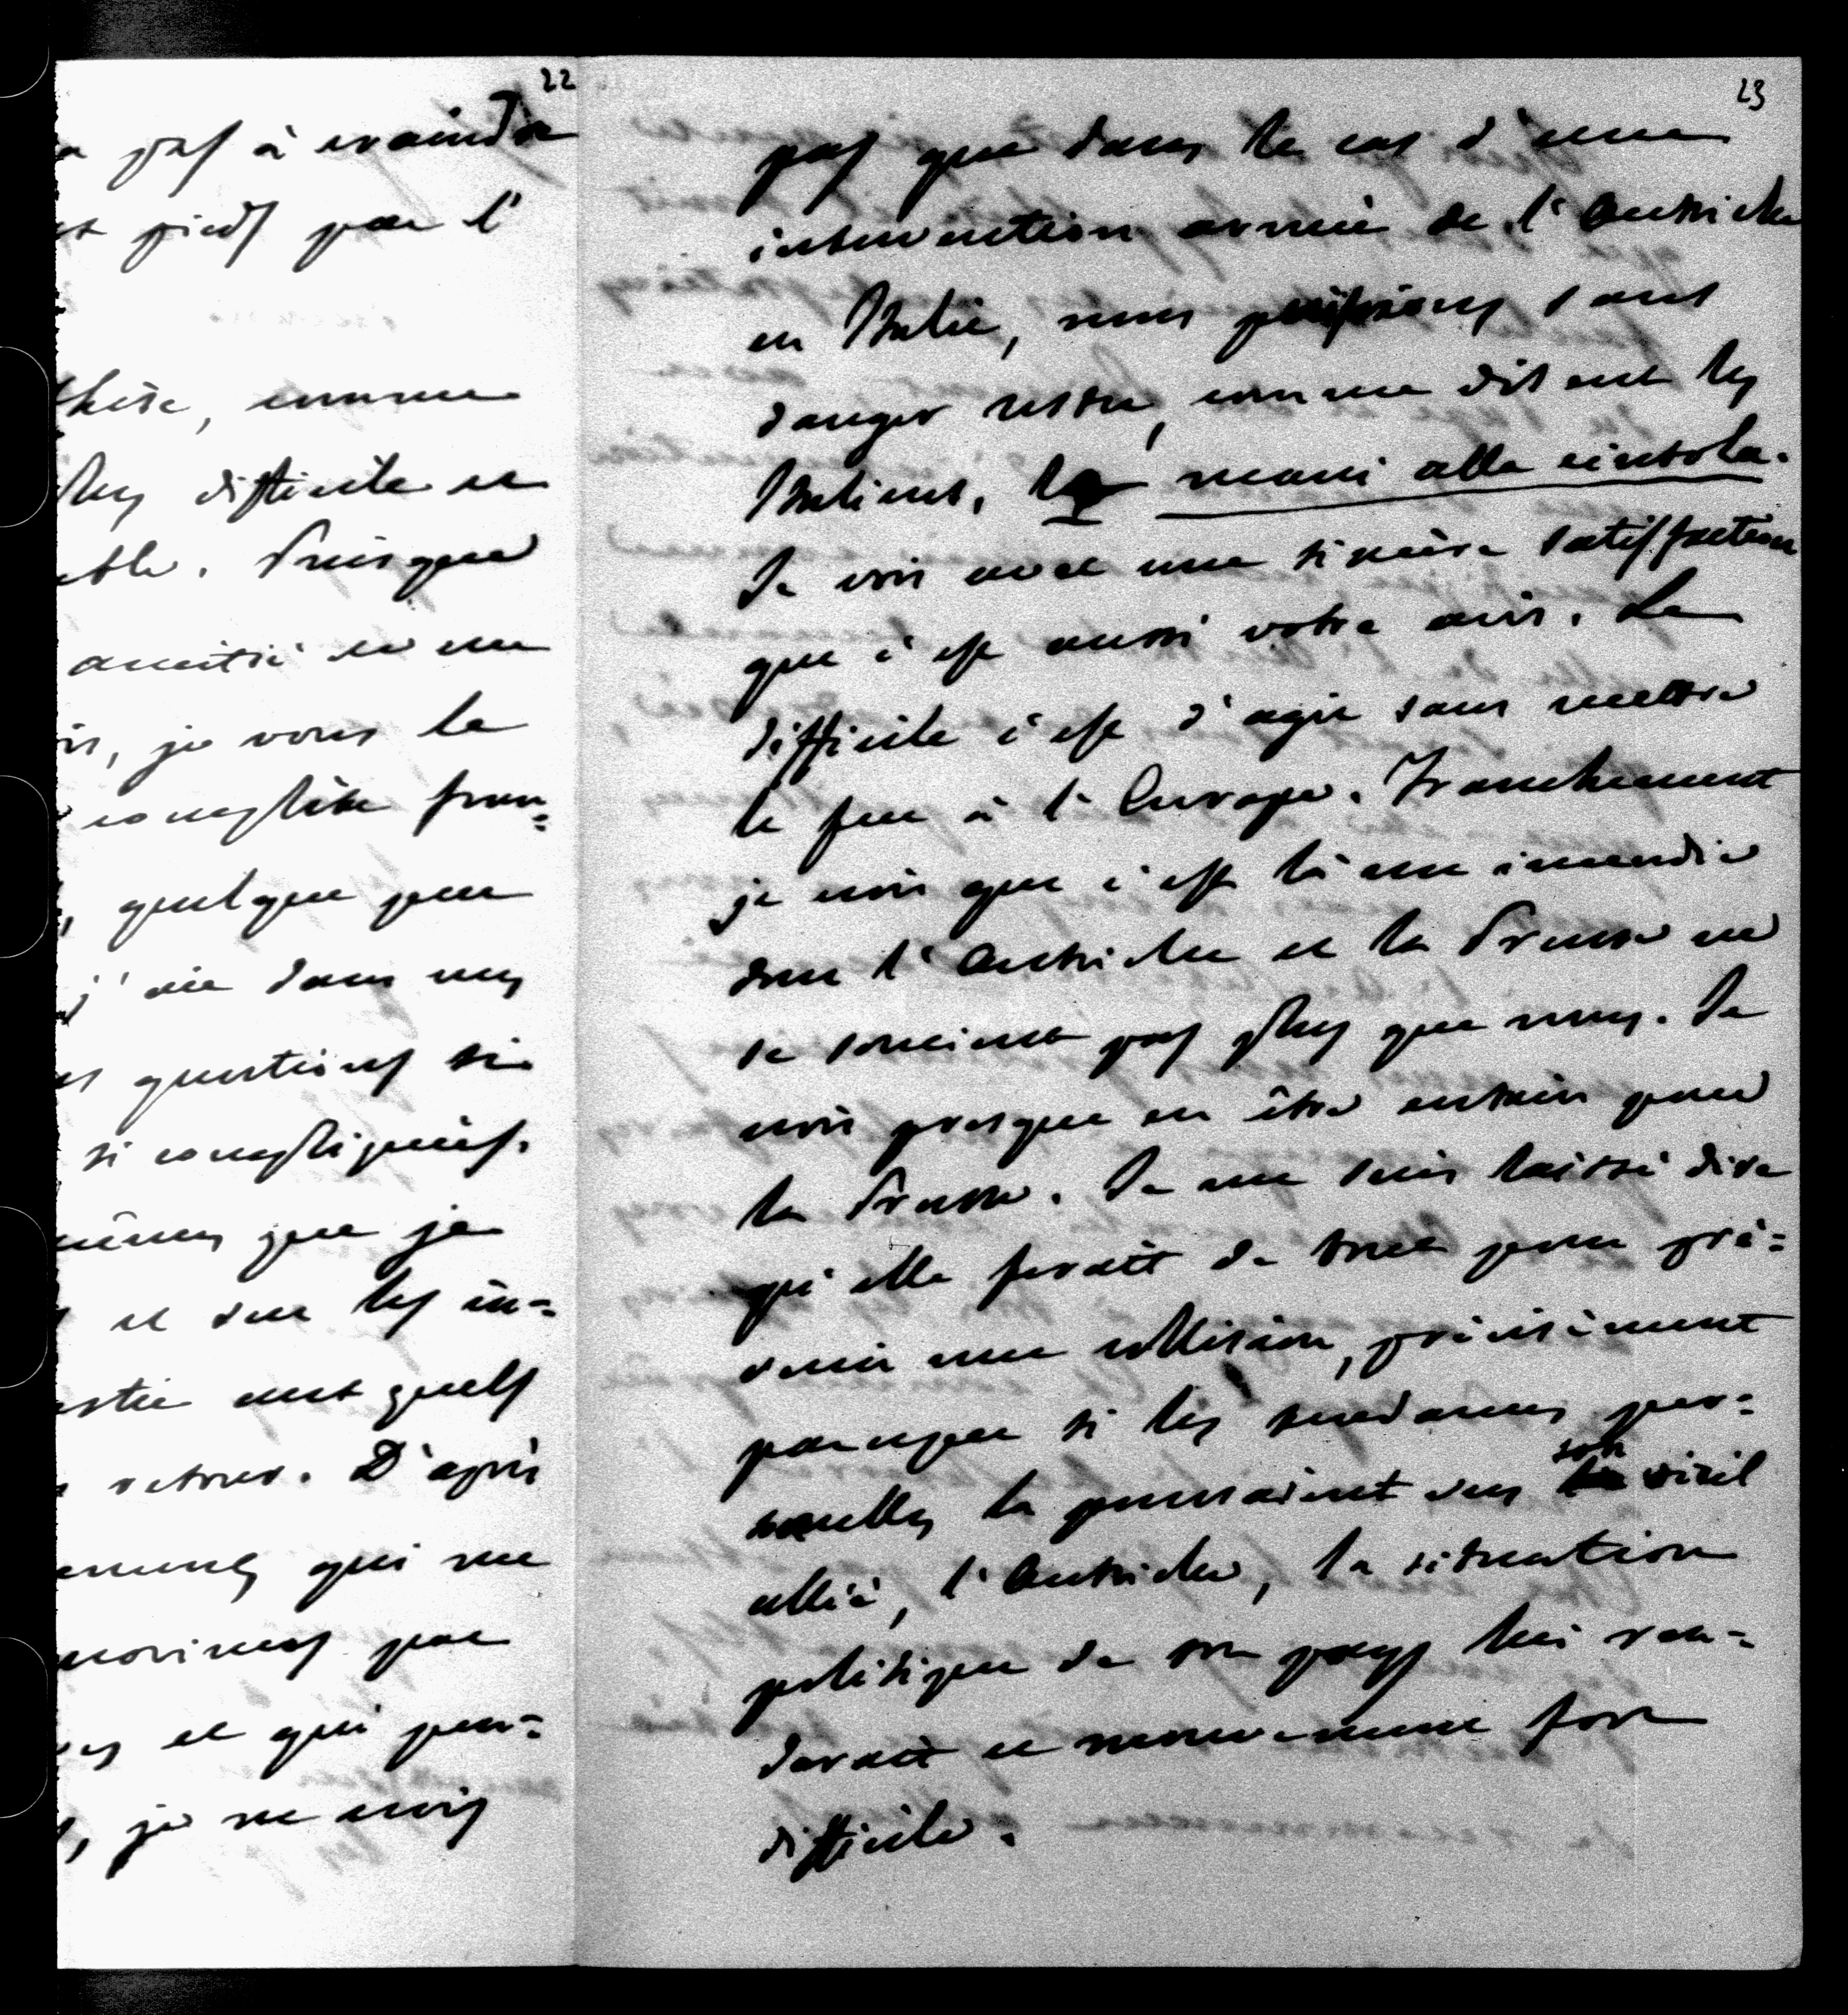 22
pas à craindre
pieds par l'
comme
plus difficile et
Puisque
amitié et me
je vous le
complète fran=
quelque peu
j'aie dans mes
questions si
si compliquées.
que je
et sur les in=
ont quels
D'après
qui me
par
et qui peu=
je ne crois
23
pas que dans le cas d'une
intervention armée de l'Autriche
en Italie, nous puissions sans
danger rester, comme disent les
Italiens, le mani alla cintola.
Je vois avec une sincère satisfaction
que c'est aussi votre avis. Le
difficile c'est d'agir sans mettre
le feu à l'Europe. Franchement
je crois que c'est là une incendie
dont l'Autriche et la Prusse ne
se soucient pas plus que nous. Je
crois presque en être certain pour
la Prusse. Je me suis laissé dire
qu'elle ferait de tout pour pré=
venir une collision, précisément
parceque si les tendances per=
sonelles la poussaient vers son vieil
allié, l'Autriche, la situation
politique de son pays lui ren=
drait ce mouvement fort
difficile.